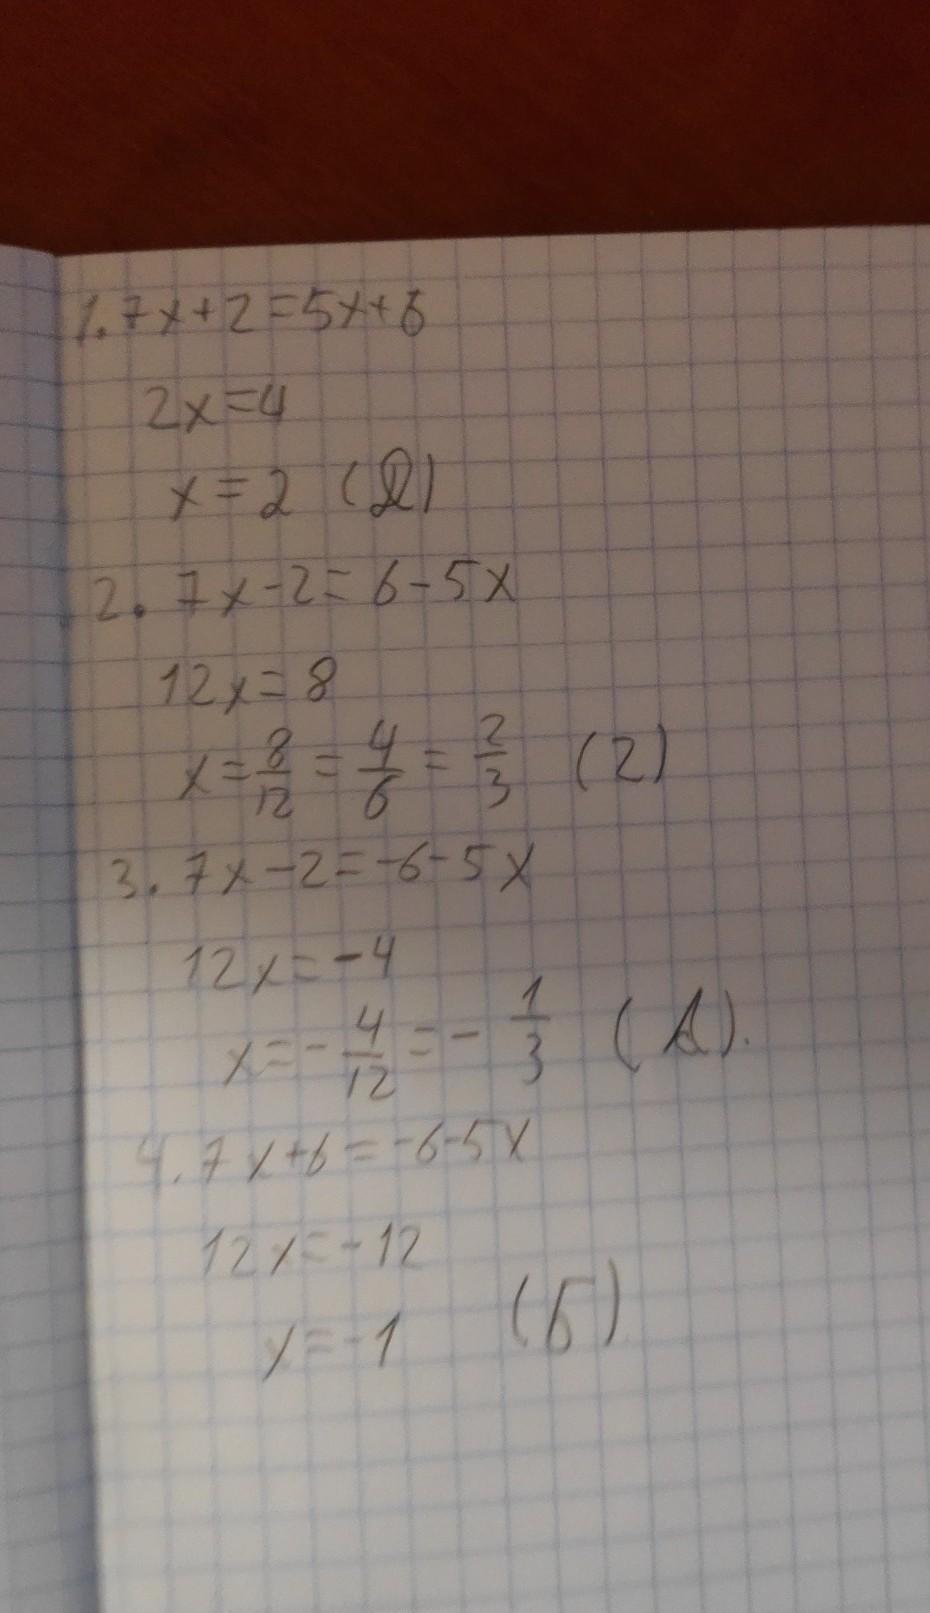 1. 7x+2=5x+6
2x=4
x=2 (Д)
2. 7x-2=6-5x
12x=8
x=8/12=4/6=2/3 (г)
3. 7x-2=-6-5x
12x=-4
x=-4/12=-1/3 (А).
4. 7x+6=-6-5x
12x=-12
x=-1 (Б)